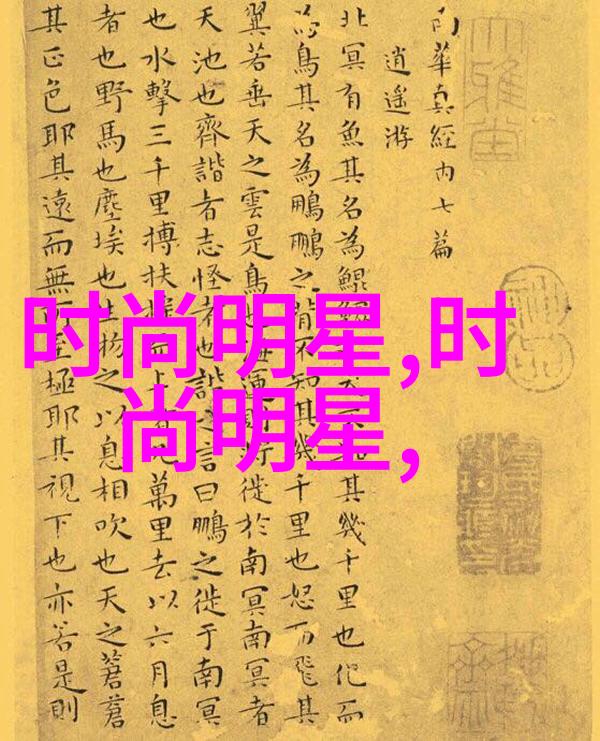 时尚明星,时
尚明星,
南華真經内七篇
逍遥游
北冥有魚其名為鯤不知其幾千里也化而
為鳥其名為鵬鵬之背不知其幾千里也怒而飛其
翼若垂天之雲是鳥也海運則將徙於南冥南冥者
天池也齊諧者志怪者也諧之言曰鵬之徙于南冥
也水擊三千里摶扶摇而上者九萬里去以六月息
者也野馬也塵埃也生物之以息相吹也天之蒼蒼
其正色耶其遠而無所至極耶其視下也亦若是則
大雅堂
神品